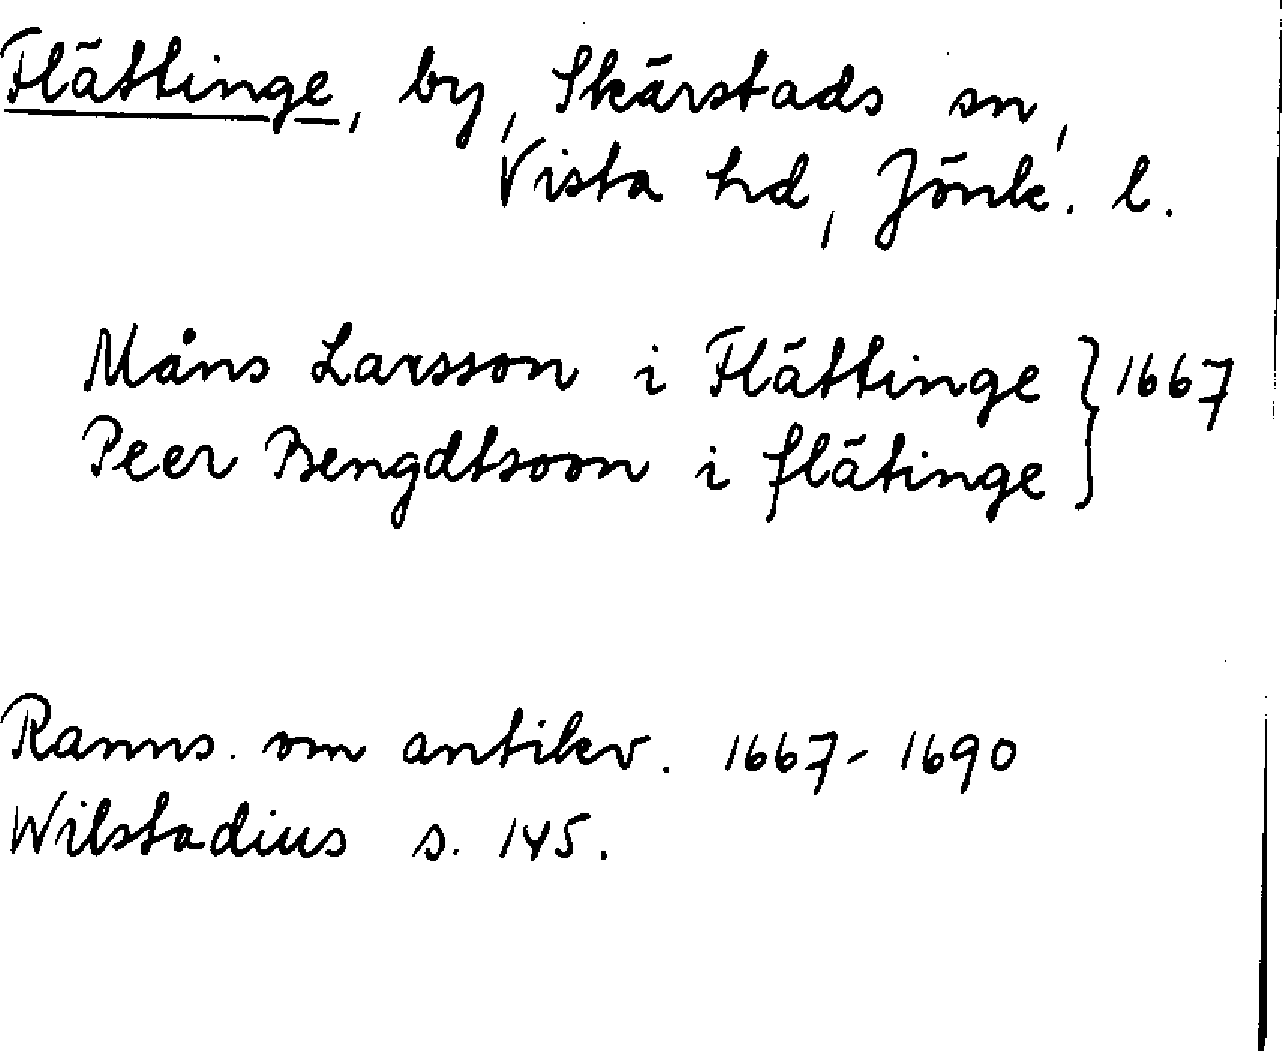 Flättinge, by, Skärstads sn,
Vista hd, Jönk. l.
Måns Larsson i Flättinge } 1667
Peer Bengdtsoon i flätinge
Ranns. om antikv. 1667-1690
Wilstadius s. 145.